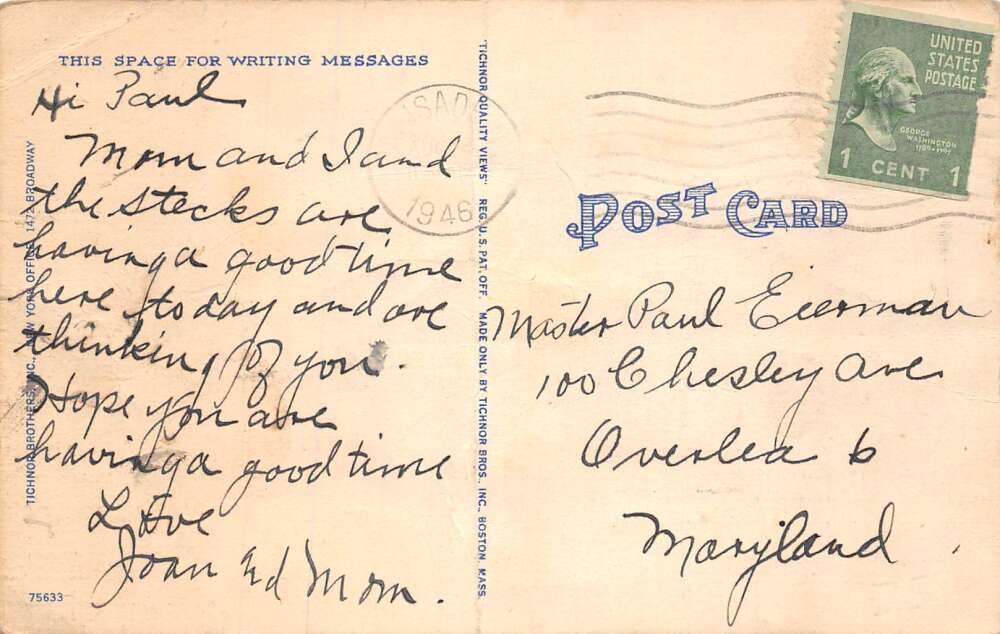 THIS SPACE FOR WRITING MESSAGES
Hi Paul
Mom and I and
the Stecks are
having a good time
here today and are
thinking of you.
Hope you are
having a good time
Love
Joan Ed Mom.
75633
TICHNOR BROTHERS, INC., NEW YORK OFFICE, 1472 BROADWAY
"TICHNOR QUALITY VIEWS" REG. U.S. PAT. OFF. MADE ONLY BY TICHNOR BROS., INC., BOSTON, MASS.
1946
UNITED
STATES
POSTAGE
GEORGE
WASHINGTON
1789-1797
1 CENT 1
POST CARD
Master Paul Eierman
100 Chesley Ave
Overlea 6
Maryland